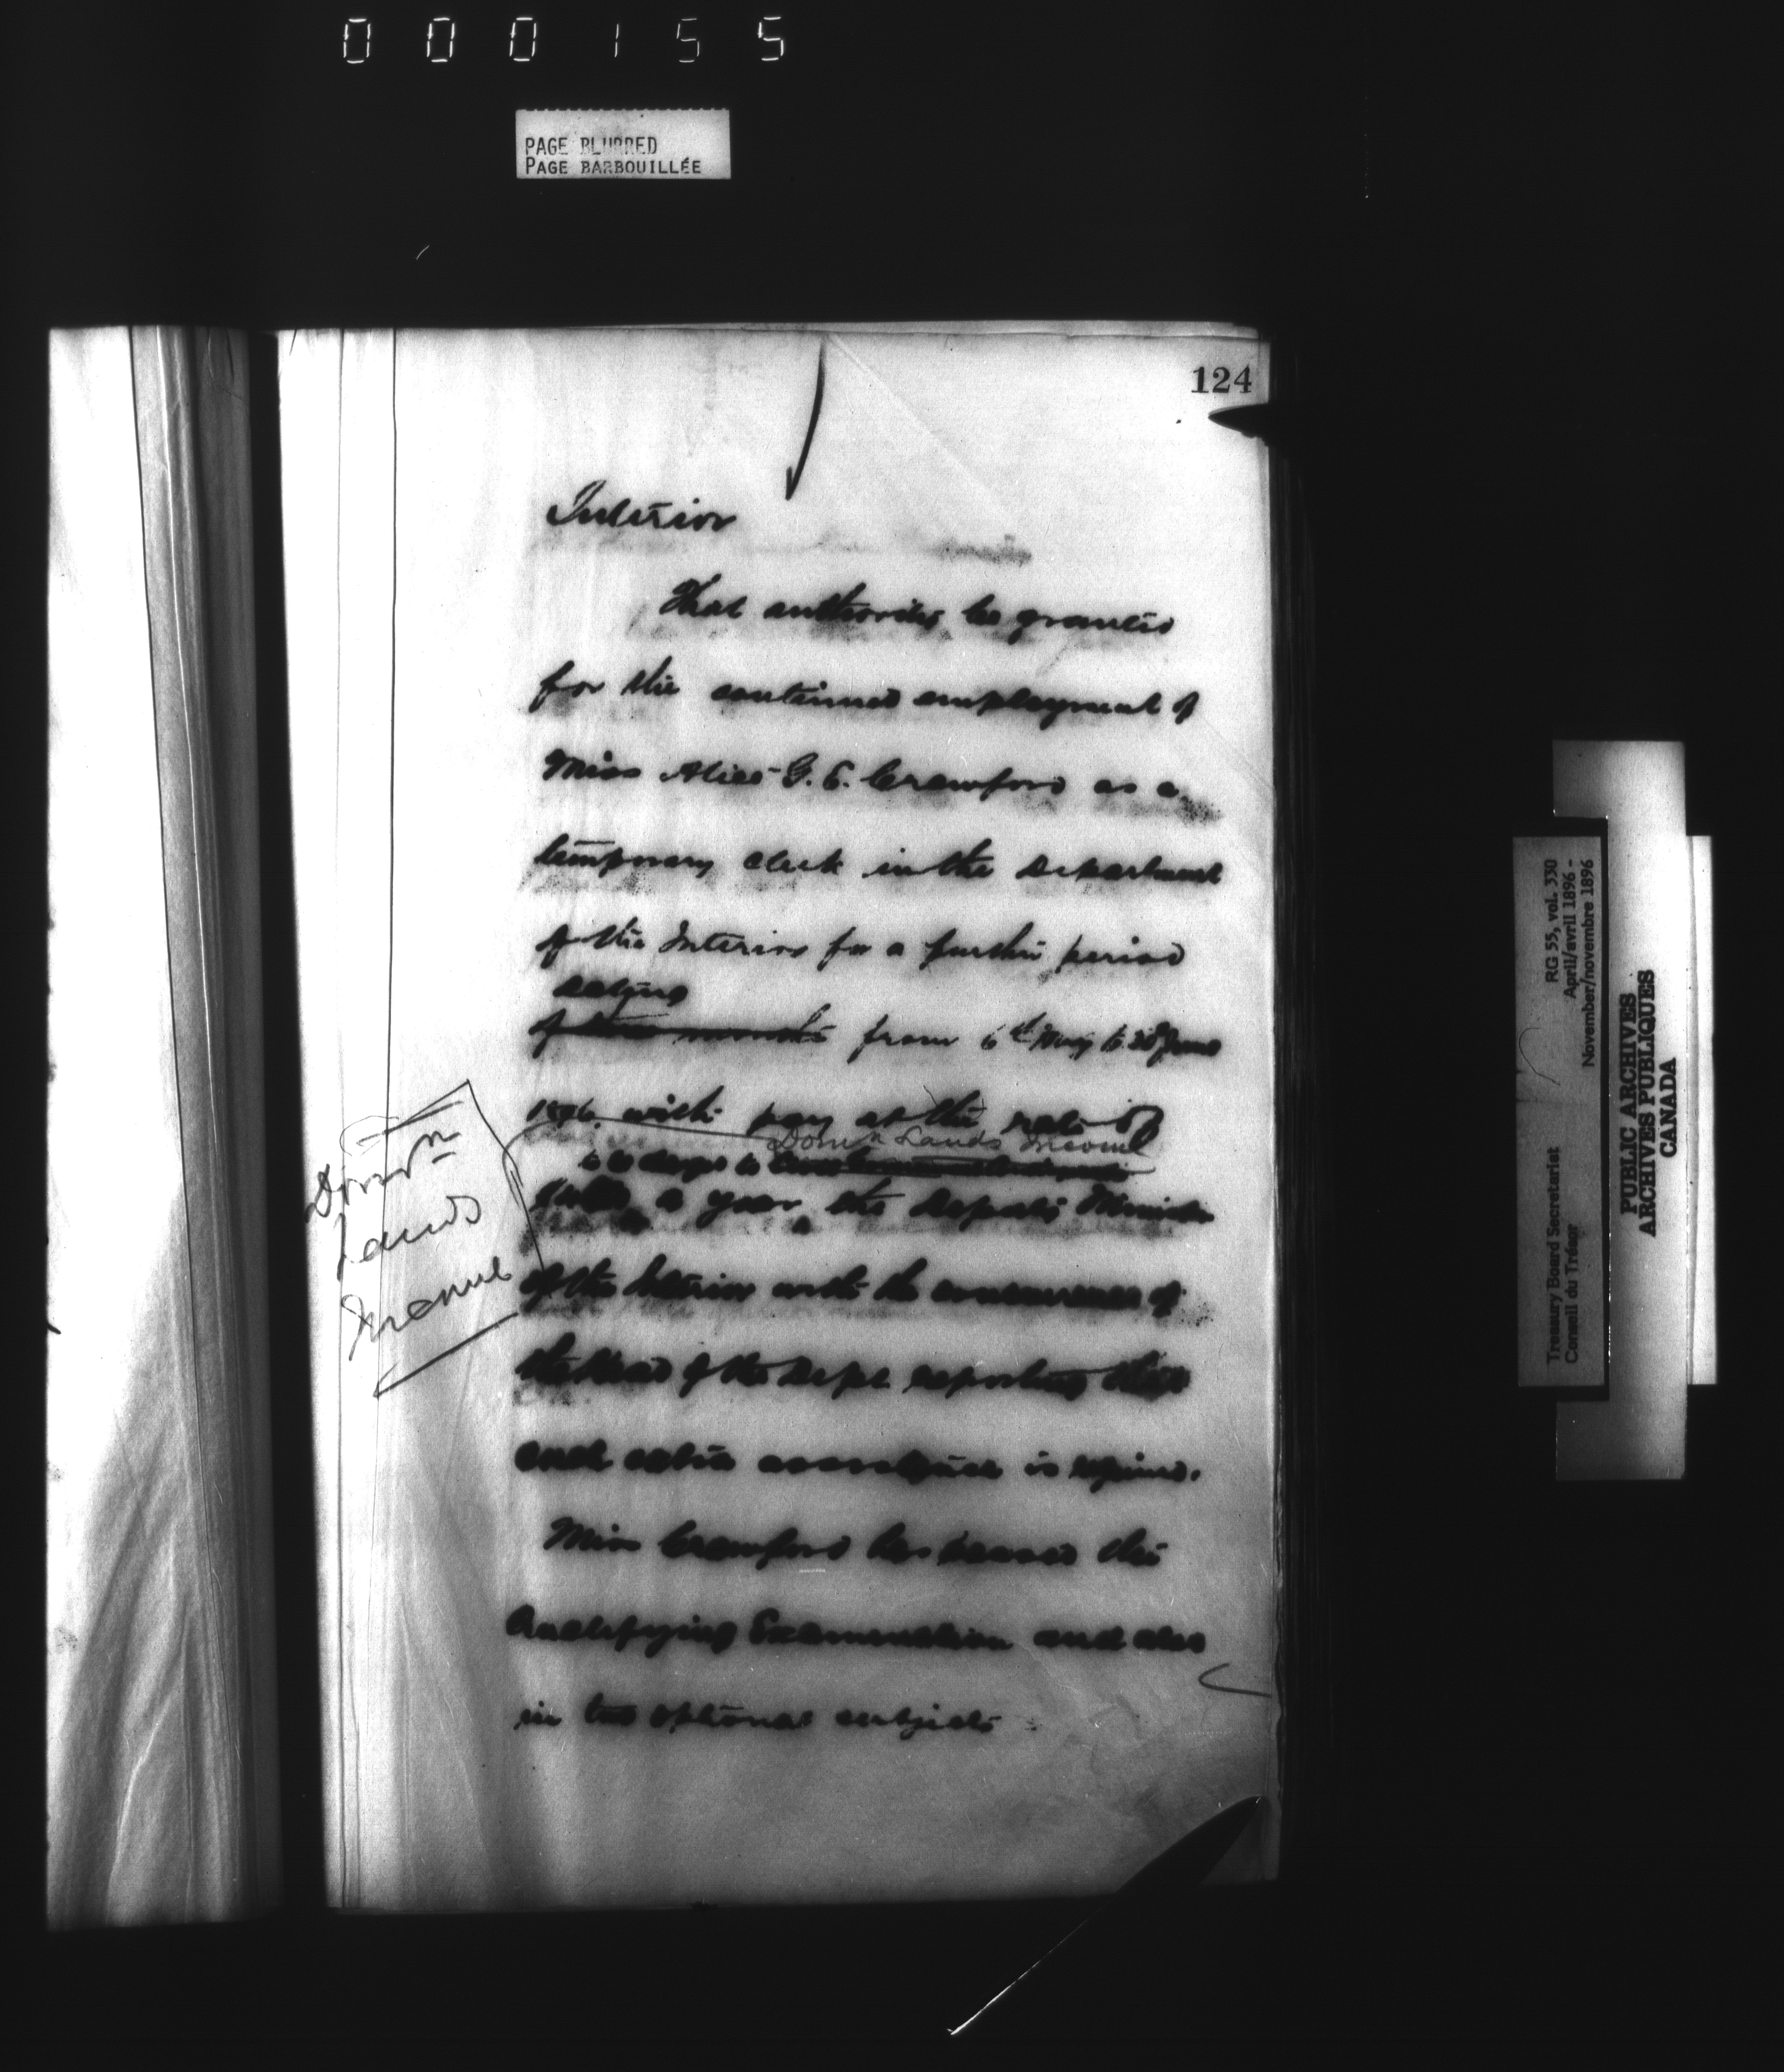 000155
PAGE BLURRED
PAGE BARBOUILLÉE
124
Interior
That authority be granted
for the continued employment of
Miss Alice G. E. Crawford as a
temporary clerk in the Department
of the Interior for a further period
dating
of three months from 6th May to 30th June
1896, with pay at the rate of
Domn Lands Income
to be charged to
a year, the Deputy Minister
of the Interior with the concurrence of
the Head of the Dept reporting that
such extra assistance is required.
Miss Crawford has passed the
Qualifying Examination and also
in two optional subjects.
Domn
Lands
Income
RG 55, vol. 330
April/avril 1896 -
November/novembre 1896
Treasury Board Secretariat
Conseil du Trésor
PUBLIC ARCHIVES
ARCHIVES PUBLIQUES
CANADA